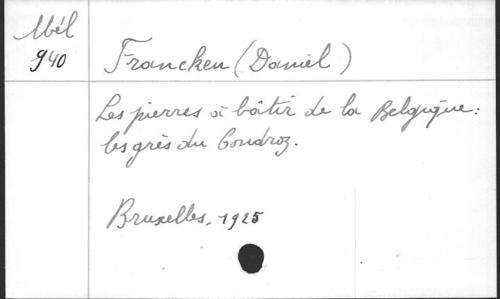 Mél
940
Francken (Daniel)
Les pierres à bâtir de la Belgique:
les grès du Condroz.
Bruxelles, 1925